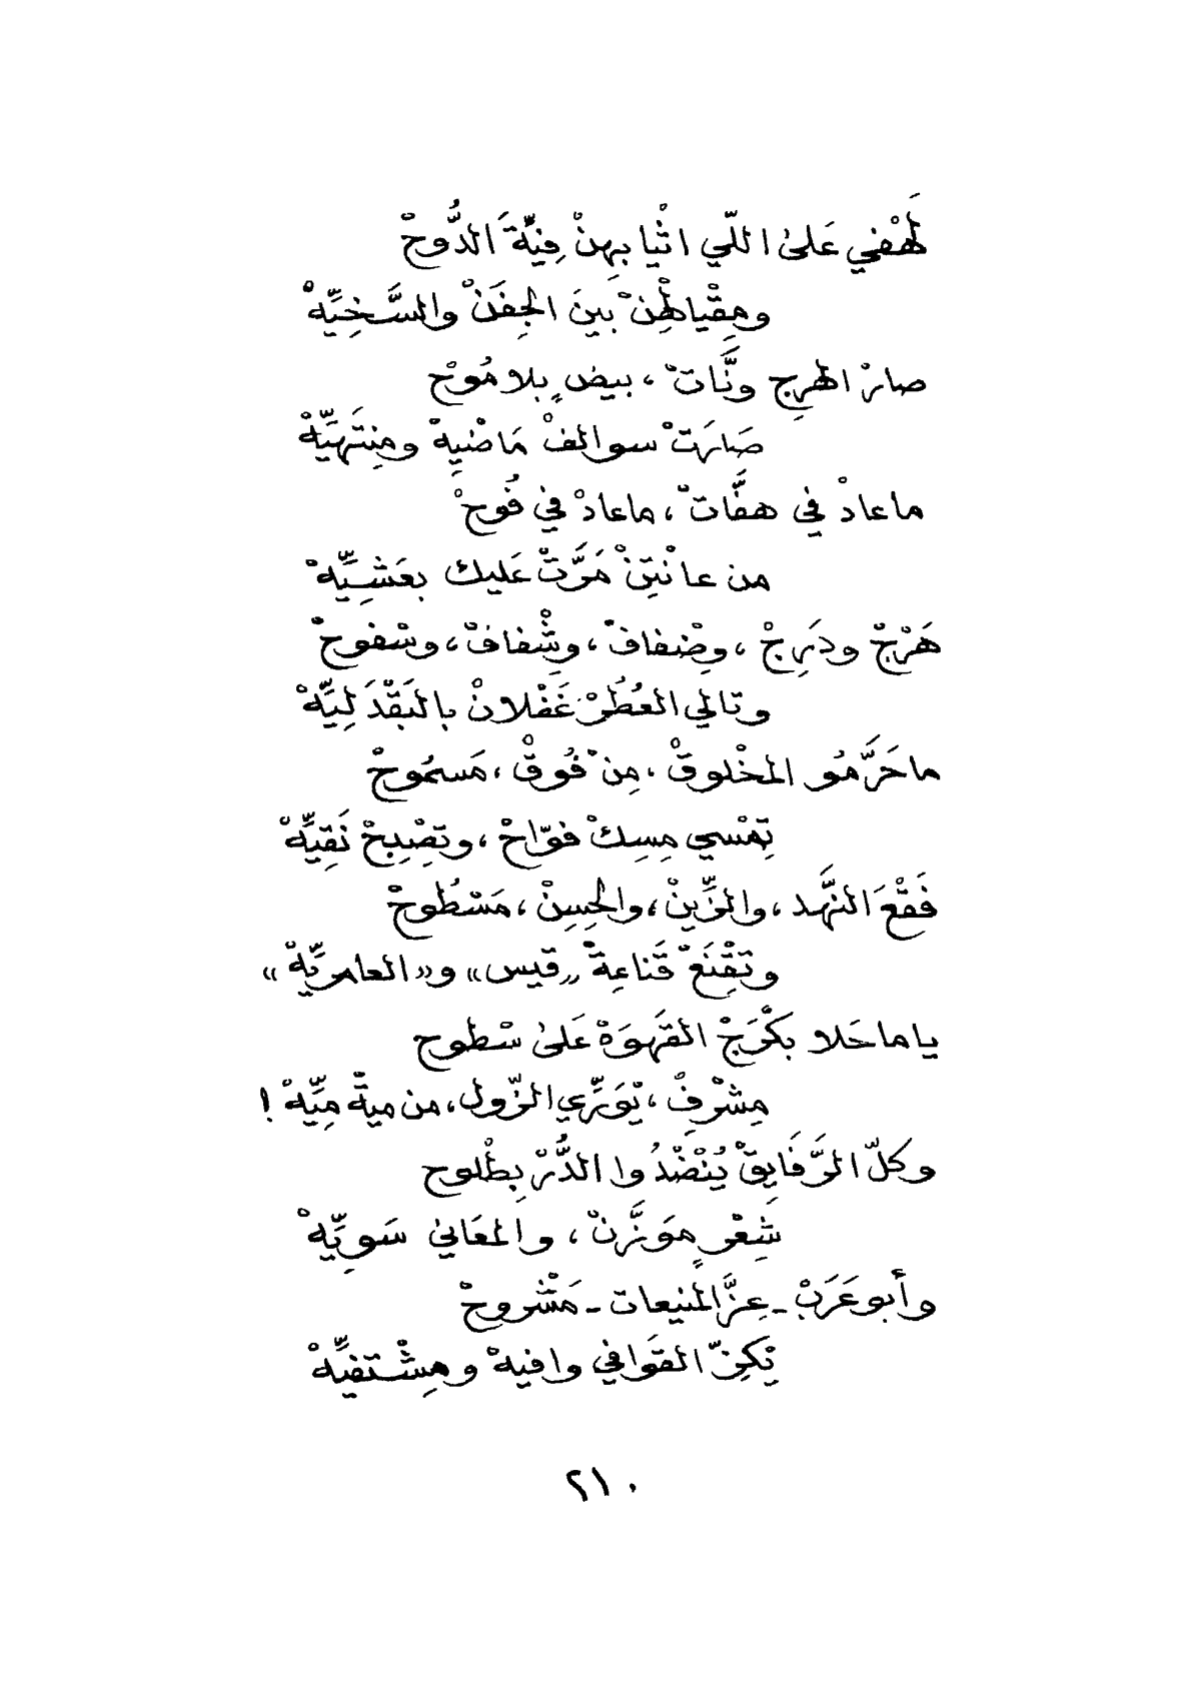 لَهْفي عَلىٰ اللّي اثْيابهنْ فِيَّةَ الدُّوحْ
ومِقْياظْهِنْ بَينَ الجِفَنْ والسَّخِيِّهْ
صارْ الهرِجِ ونَّاتْ ، بيضٍ بلا مُوحْ
صَارَتْ سوالفْ مَاضْيِهْ ومِنتَهِيِّهْ
ماعادْ في هفَّاتْ ، ماعادْ في فُوحْ
من عانْتِنْ مَرَّتْ عَليك بعَشِيِّهْ
هَرْجْ ودَرِجْ ، وضْنفافْ ، وشْفافْ ، وسْفوحْ
وتالي العُطُرْ غَفْلانْ بالبَقْدَلِيِّهْ
ماحَرَّمُو المخْلوقْ ، مِنْ فُوقْ ، مَسمُوحْ
تِمْسي مِسِكْ فوّاحْ ، وتصْبِحْ نَقِيِّهْ
فَقْعَ النَّهد ، والزِّينْ ، والحِسِنْ ، مَسْطُوحْ
وتَقْنَعْ قَناعِةْ «قيس» و«العامريِّهْ»
ياماحَلا بَكْرَجْ القَهوَهْ عَلىٰ سْطوح
مِشْرْفِ ، يْوَرِّي الزّول ، من ميةْ مِيِّهْ !
وكلّ الرَّفَايِقْ يُنْضّدُوا الدُّرْ بِطْلوح
شَعِرْ مِوَزَّنْ ، والمعَاني سَويِّهْ
وأبوعَرَبْ - عِزَّ المنيعات - مَشْروحْ
يْكِنّ القوَافي وافيهْ ومِشْتفيِّهْ
٢١٠